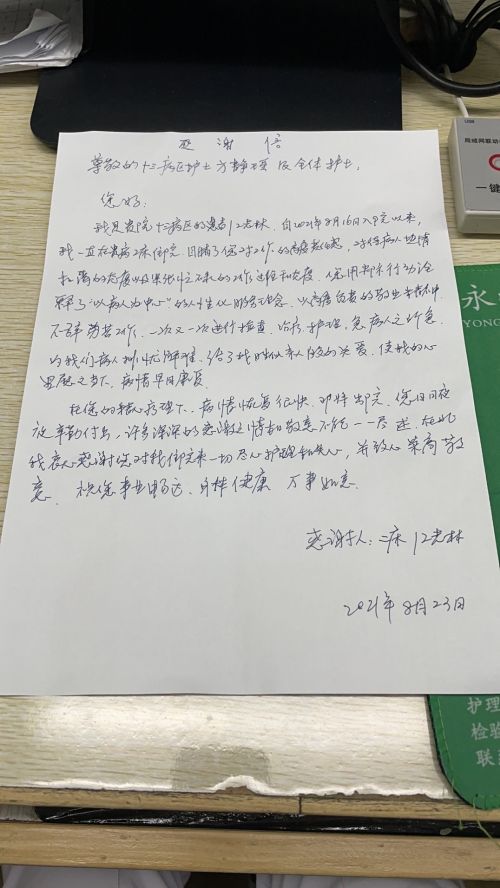 感谢信
尊敬的十三病区护士方静 及全体护士,
您好:
我是贵院十三病区的患者江老林,自2021年8月16日入院以来,
我一直在贵病2床住院,目睹了您对工作的高度 ,对待病人热情
和蔼的态度以及紧张忙而不 的工作过程和态度,您用那 行动 论
释了"以病人为中心"的人性化服务理念,以高度负责的敬业
不辞劳苦工作,一次又一次进行检查、治疗、护理,急病人之所急,
为我们病人排忧解难,给了我胜似亲人般的关爱,使我的心
里 之下,病情早日康复。
在您的精心 理下,病情恢复很快,即将出院,您日日夜
夜辛勤付出,许多深深的感谢之情和敬意不能一一尽述,在此
我衷心感谢您对我住院来一切尽心护理和关心,并致以崇高敬
意,祝您事业畅达、身体健康 万事如意.
感谢人:二床 江老林
2021年8月23日
USB
局域网联动
一键
永
护理
检验
联